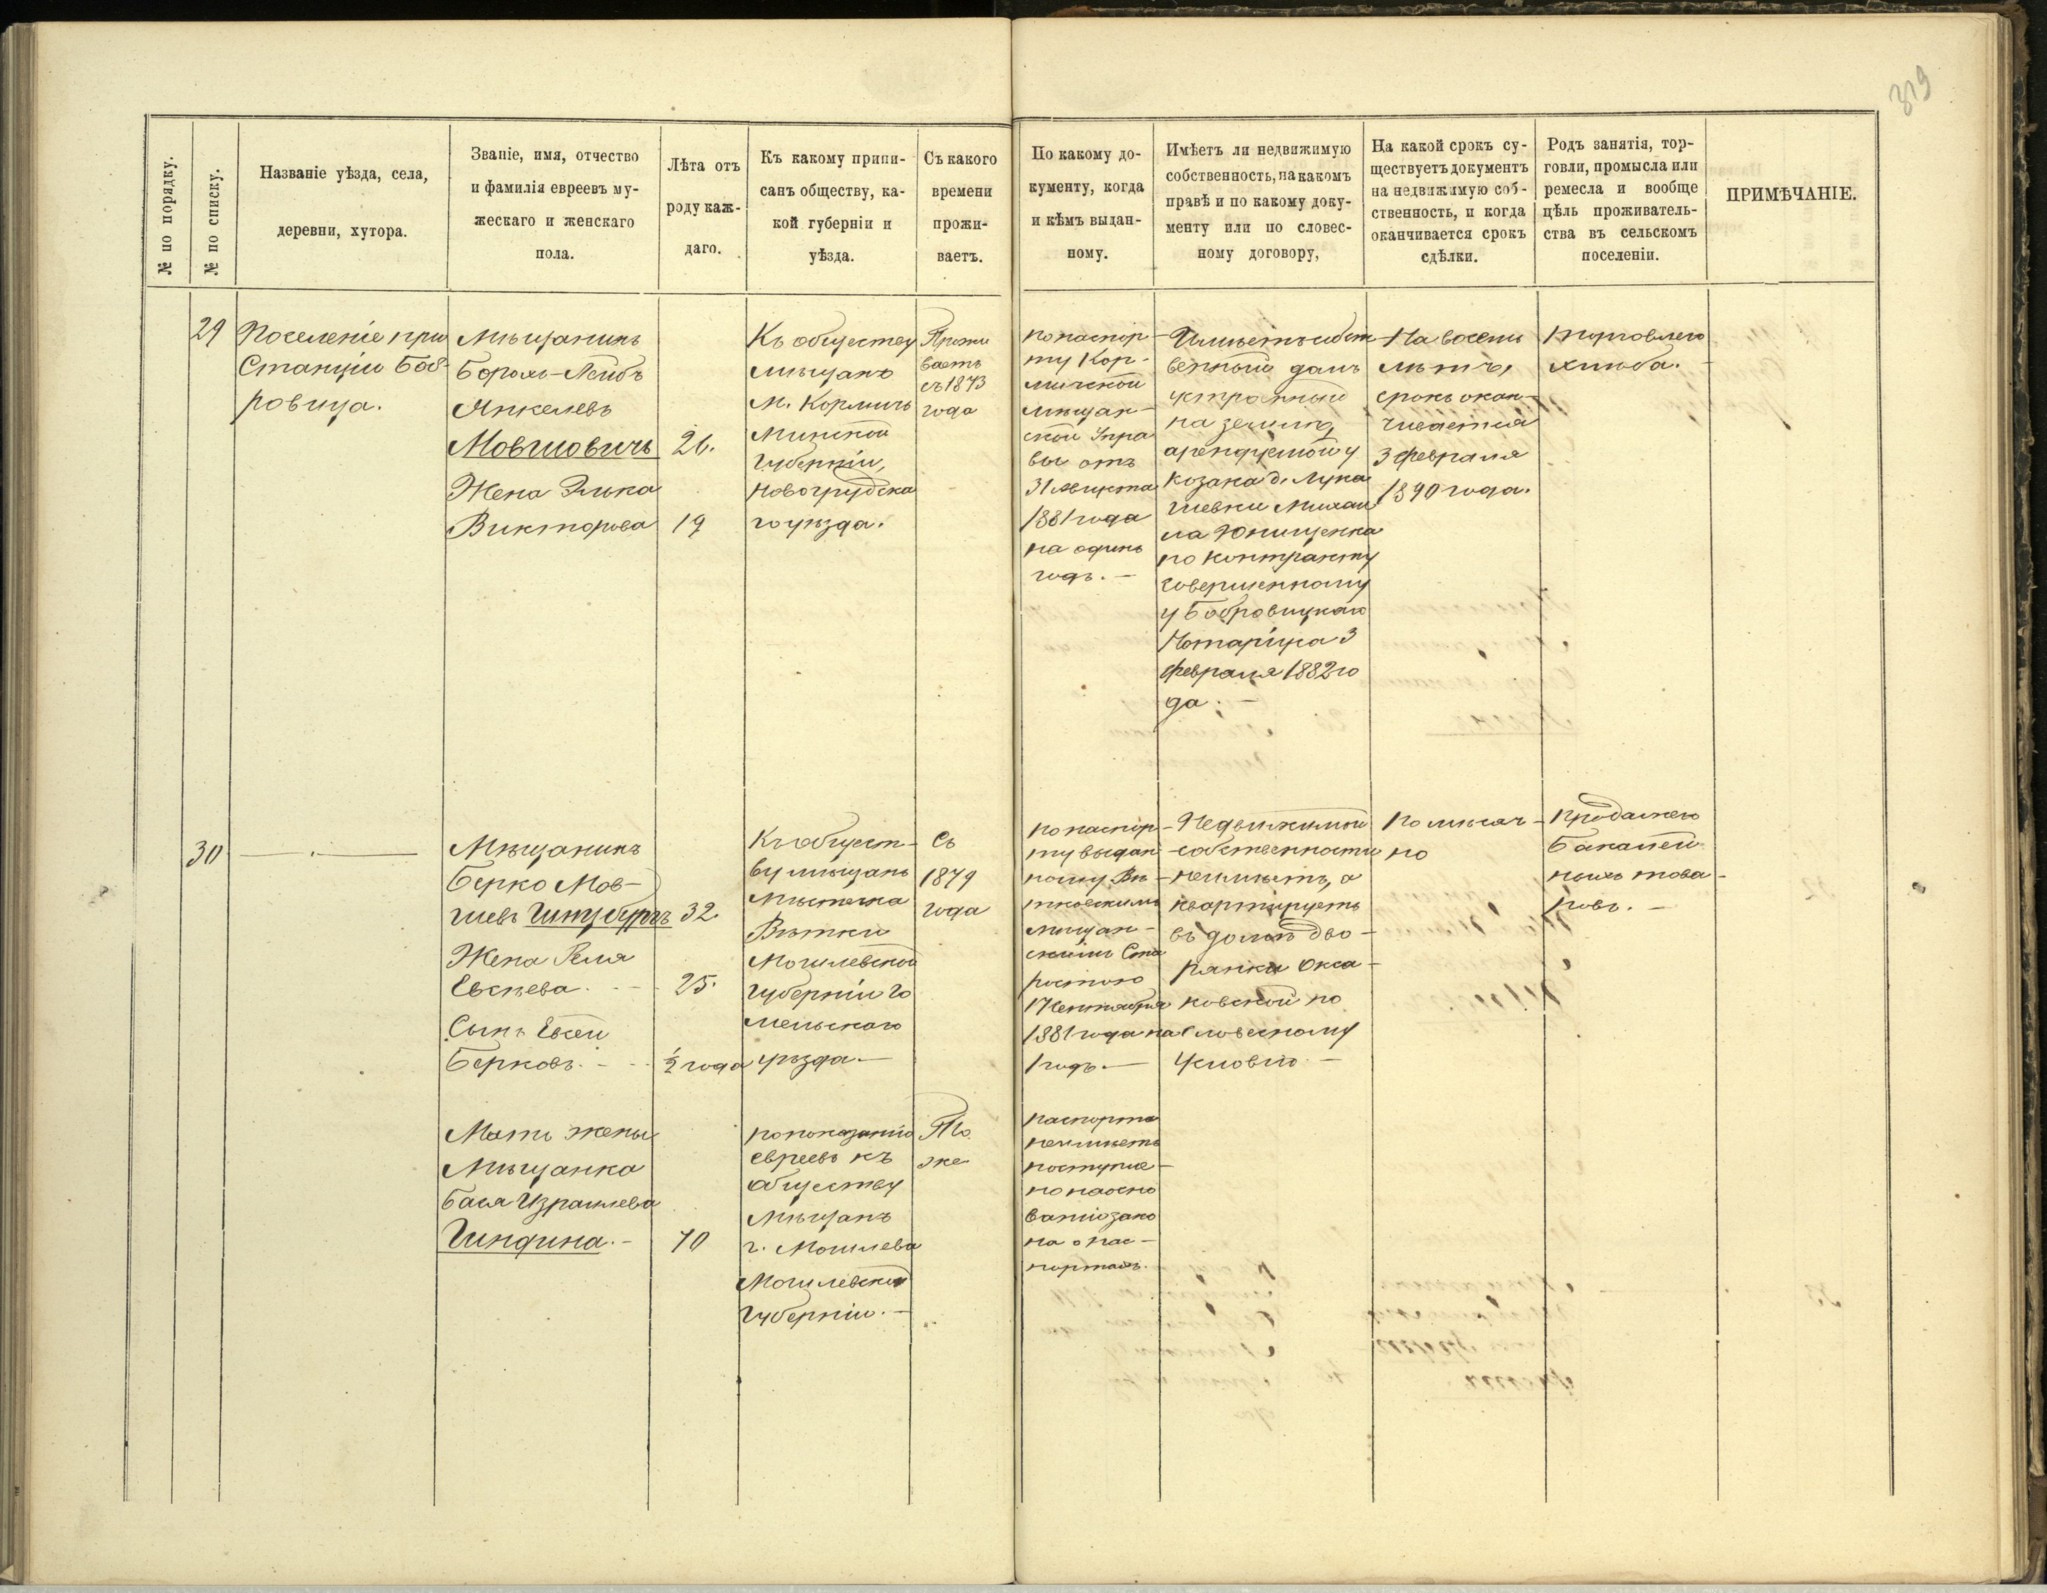 319
№ по порядку.
№ по списку.
Названіе уѣзда, села,
деревни, хутора.
Званіе, имя, отчество
и фамилія евреевъ му-
жескаго и женскаго
пола.
Лѣта отъ
роду каж-
даго.
Къ какому припи-
санъ обществу, ка-
кой губерніи и
уѣзда.
Съ какого
времени
прожи-
ваетъ.
По какому до-
кументу, когда
и кѣмъ выдан-
ному.
Имѣетъ ли недвижимую
собственность, на какомъ
правѣ и по какому доку-
менту или по словес-
ному договору,
На какой срокъ су-
ществуетъ документъ
на недвижимую соб-
ственность, и когда
оканчивается срокъ
сдѣлки.
Родъ занятія, тор-
говли, промысла или
ремесла и вообще
цѣль проживатель-
ства въ сельскомъ
поселеніи.
ПРИМѢЧАНІЕ.
29
Поселеніе при
Станціи Боб-
ровица.
Мѣщанинъ
Борохъ-Лейбъ
Янкелевъ
Мовшовичъ
Жена Элька
Викторова
26.
19
Къ обществу
мѣщанъ
м. Корличъ
Минской
Губерніи,
Новогрудска
го уѣзда.
Прожи
ваетъ
съ 1873
года
по паспор-
ту Кор-
личской
мѣщан-
ской Упра
вы отъ
31 Августа
1881 года
на одинъ
годъ. —
Имѣетъ собст
венный домъ
устроенный
на землѣ,
арендуемой у
козака д. Лука
шевки Михаи
ла Юнищенка
по контракту
совершенному
у Бобровицкаго
Нотаріуса 3
февраля 1882 го
да. —
На восемь
лѣтъ,
срокъ окан-
чивается
3 февраля
1890 года.
торговлею
хлѣба.
30
Мѣщанинъ
Берко Мов-
шевъ Гинзбургъ
Жена Геля
Евсѣева
Сынъ Евсей
Берковъ. —
32.
25.
½ года
Къ общест-
ву мѣщанъ
мѣстечка
Вѣтки
Могилевской
губерніи Го
мельскаго
уѣзда. —
Съ
1879
года
по паспор-
ту выдан
ному Вѣ-
тковскимъ
мѣщан-
скимъ Ста
ростою
17 Сентября
1881 года на
1 годъ. —
Недвижимой
собственности
неимѣетъ, а
квартируетъ
въ домѣ дво-
рянки Окса-
ковской по
словесному
условію. —
По мѣсяч-
но
продажею
бакалей
ныхъ това-
ровъ. —
Мать жены
Мѣщанка
Бася Израилева
Гиндина. —
70
по показанію
евреевъ къ
обществу
мѣщанъ
г. Могилева
Могилевской
губерніи. —
То
же
паспорта
неимѣетъ
поступле-
но на осно
ваніи зако
на о пас-
портахъ.